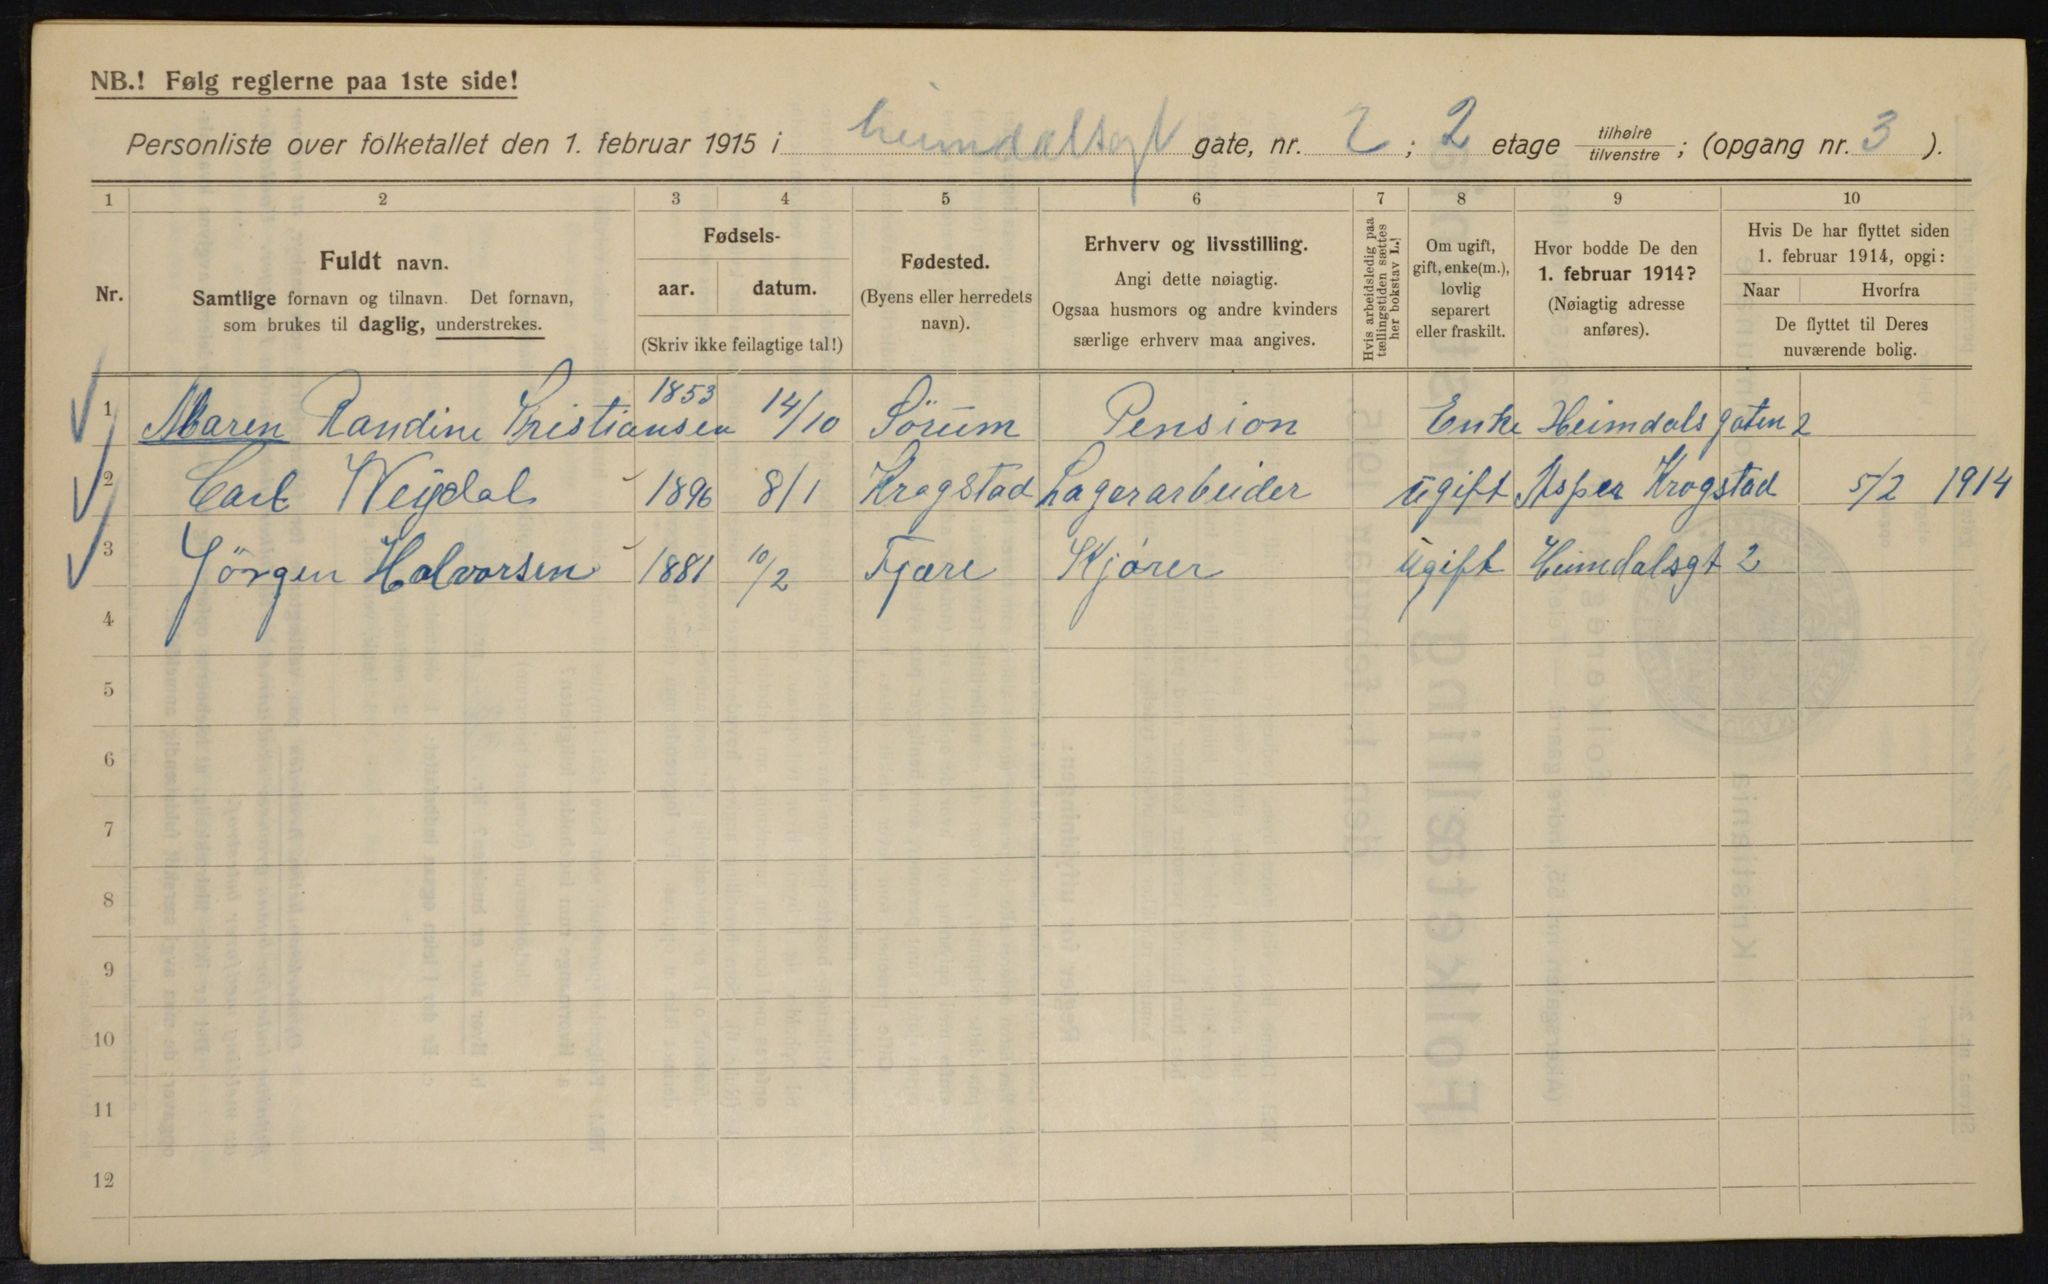 NB.! Følg reglerne paa 1ste side!
Personliste over folketallet den 1. februar 1915 i Heimdalsgt gate, nr. 2 ; 2 etage tilhøire tilvenstre ; (opgang nr. 3 ).
1 2 3 4 5 6 7 8 9 10
Nr.
Fuldt navn.
Samtlige fornavn og tilnavn. Det fornavn,
som brukes til daglig, understrekes.
Fødsels-
aar. datum.
(Skriv ikke feilagtige tal!)
Fødested.
(Byens eller herredets
navn).
Erhverv og livsstilling.
Angi dette nøiagtig.
Ogsaa husmors og andre kvinders
særlige erhverv maa angives.
Hvis arbeidsledig paa
tællingstiden sættes
her bokstav L.!
Om ugift,
gift, enke(m.),
lovlig
separert
eller fraskilt.
Hvor bodde De den
1. februar 1914?
(Nøiagtig adresse
anføres).
Hvis De har flyttet siden
1. februar 1914, opgi:
Naar Hvorfra
De flyttet til Deres
nuværende bolig.
1 Maren Randine Kristiansen 1853 14/10 Sörum Pension Enke Heimdals gaten 2
2 Carl Weydal 1896 8/1 Krogstad Lagerarbeider ugift Asper Krogstad 5/2 1914
3 Jörgen Halvorsen 1881 10/2 Fjære Kjører ugift Heimdalsgt 2
4
5
6
7
8
9
10
11
12